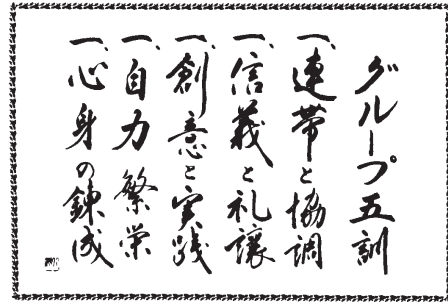 グループ五訓
一、連帯と協調
一、信義と礼譲
一、創意と実践
一、自力繁栄
一、心身の錬成